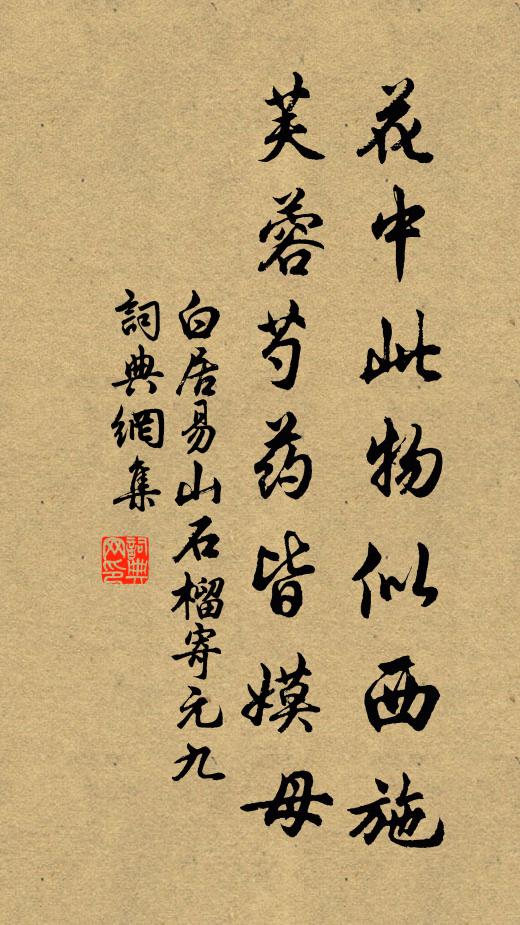 花中此物似西施
芙蓉芍药皆嫫母
白居易山石榴寄元九
詞典網集
詞典网印